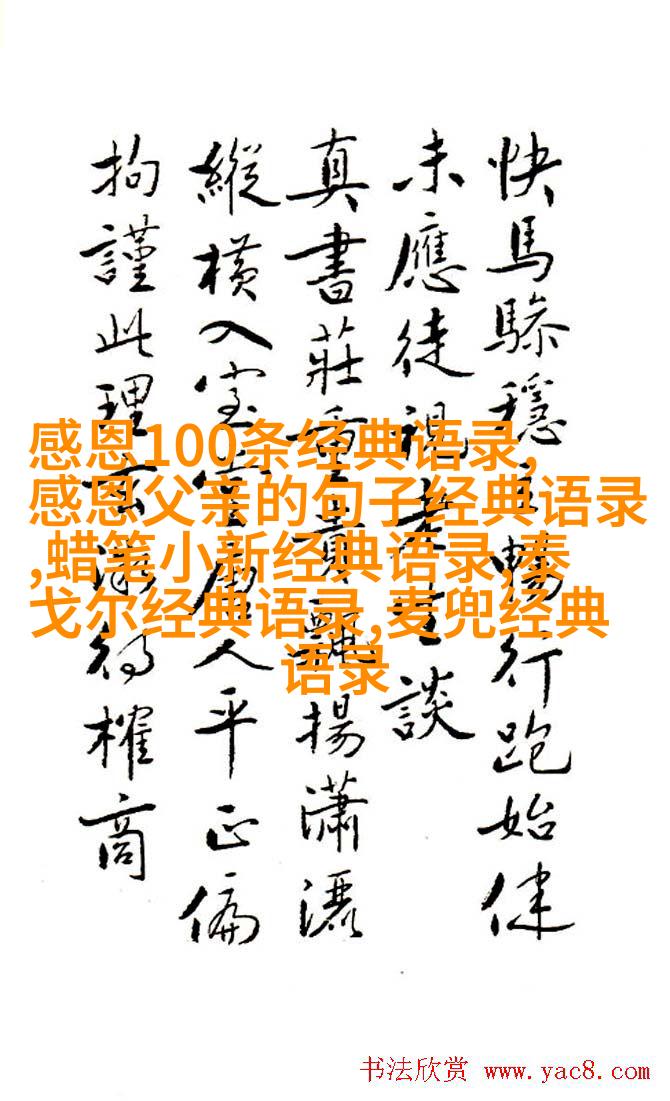 快馬穩暢行跑始健
未應徒視談
真書莊重貴揚瀟灑
縱橫入室人平正偏
拘謹此理得榷商
感恩100条经典语录,
感恩父亲的句子经典语录
,蜡笔小新经典语录,泰
戈尔经典语录,麦兜经典
语录
书法欣赏 www.yac8.com